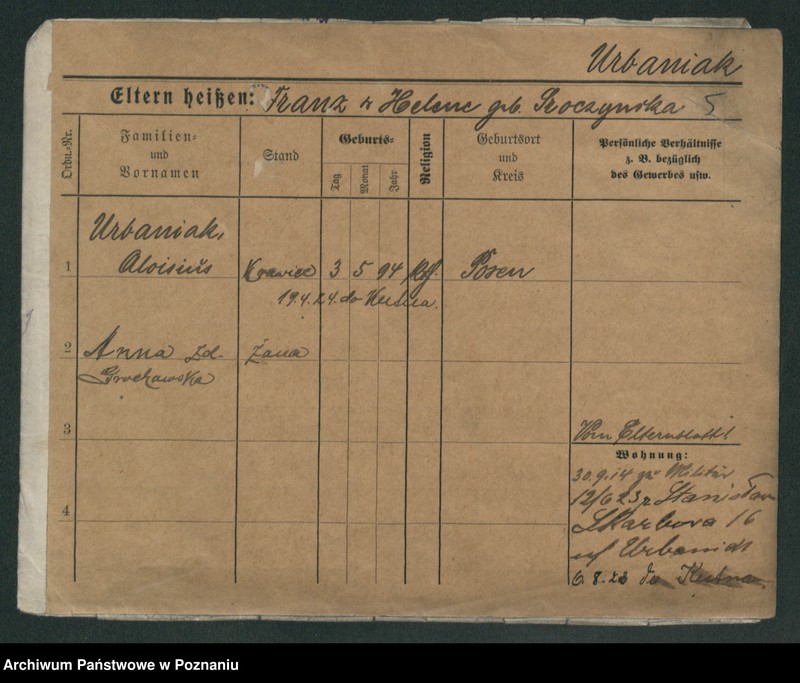 Urbaniak
Eltern heißen: Franz u Helene geb. Proczynska 5
Ordn.-Nr.
Familien-
und
Vornamen
Stand
Geburts-
Tag
Monat
Jahr
Religion
Geburtsort
und
Kreis
Persönliche Verhältnisse
z. B. bezüglich
des Gewerbes usw.
1
Urbaniak,
Aloisius Krawiec 3 5 94 Posen
19.4.24. do Kutna.
2
Anna zd. żona
Grochowska
3
Vom Elternblatt!
Wohnung:
30.9.14 zum Militär
12/6 23 z Stanisław
Skarbowa 16
Urbaniak
4
6.8.23 do Kutna
Archiwum Państwowe w Poznaniu